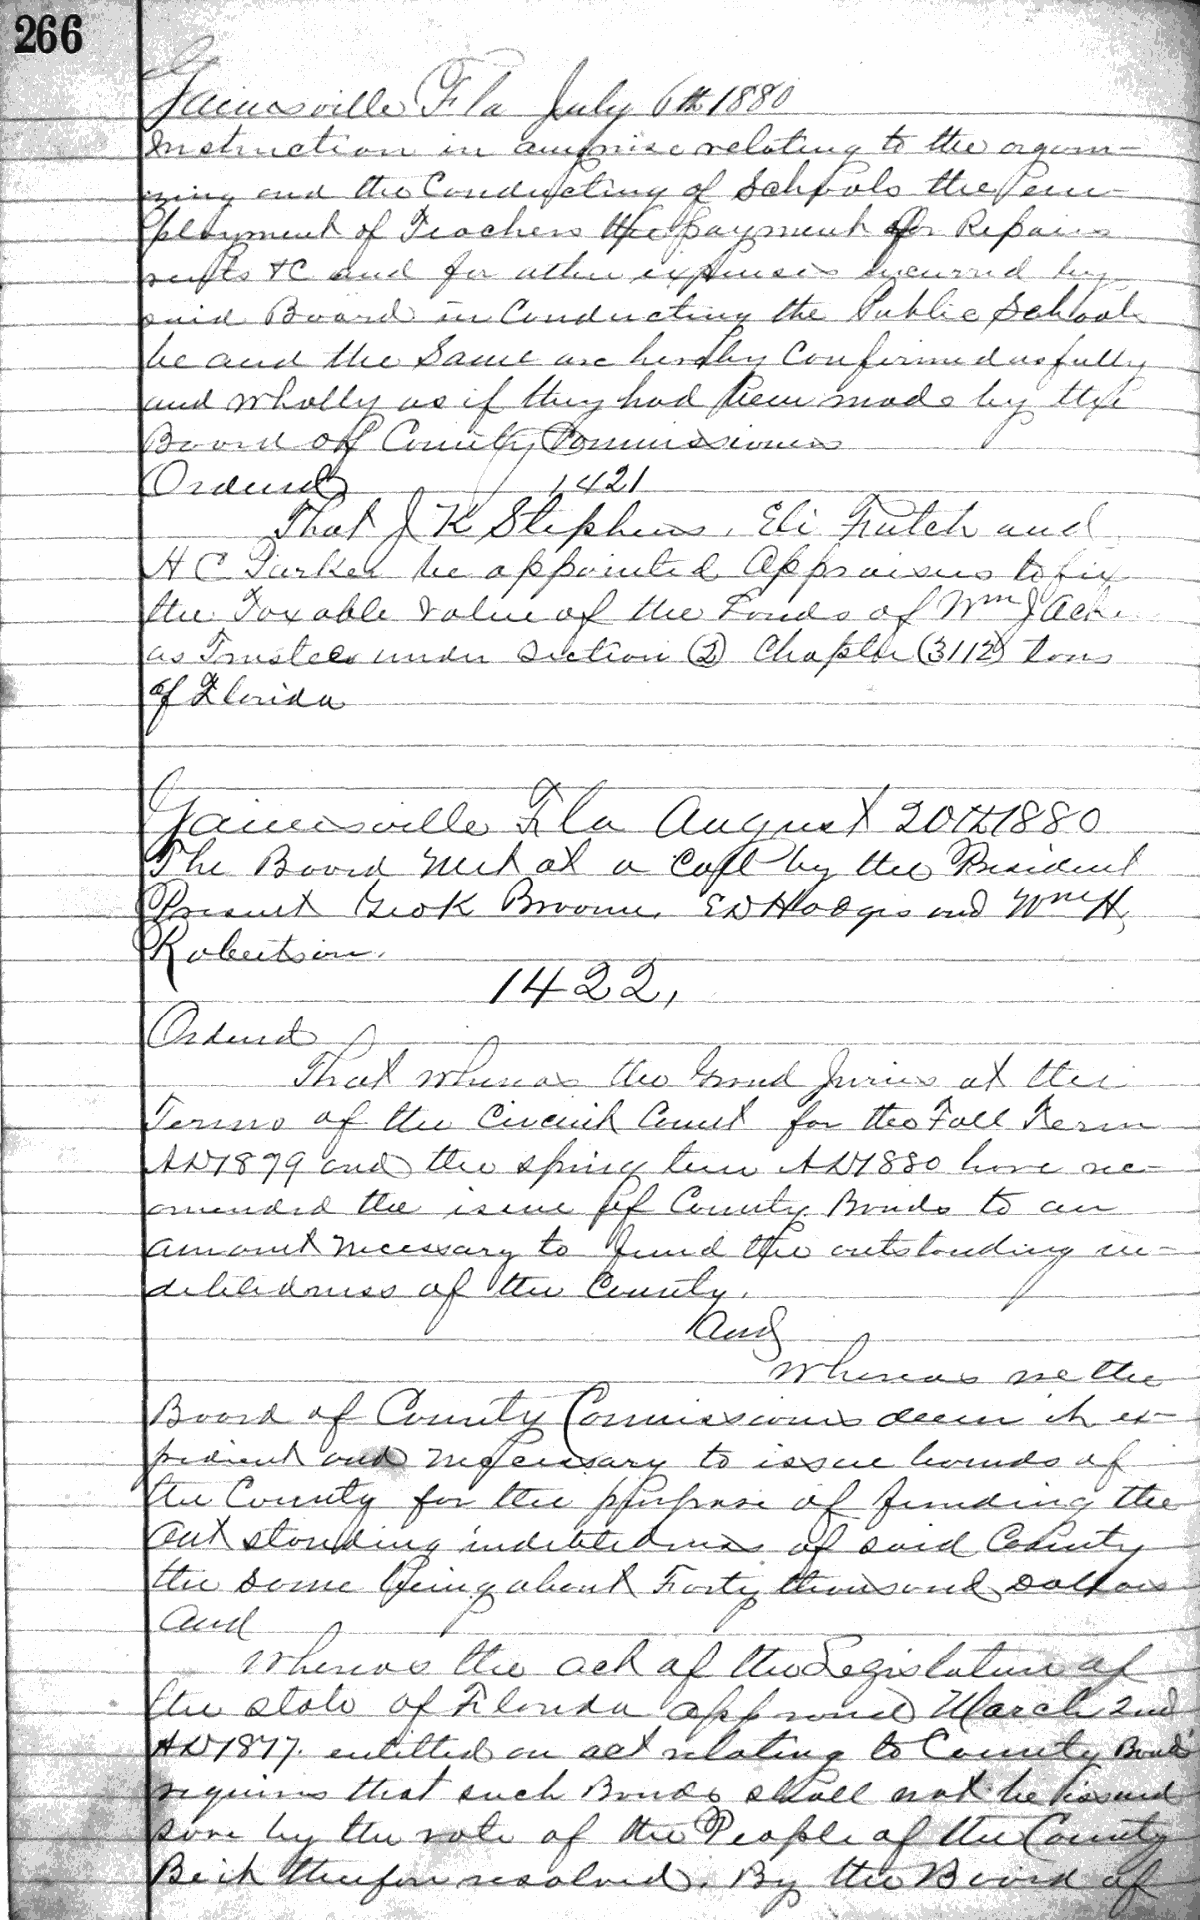 266
Gainesville Fla July 6th 1880
Instruction in anywise relating to the organi-
zing and the Conducting of Schools the em-
ployment of Teachers the payment for Repairs
rents &C and for other expenses incurred by
said Board in Conducting the Public Schools
be and the Same are hereby Confirmed as fully
and wholly as if they had been made by the
Board of County Commissioners
Ordered 1421
That J K Stephens, Eli Futch and
H C Parker be appointed Appraisers to fix
the Taxable value of the Lands of Wm J
as Trustee under Section (2) Chapter (3112) Laws
of Florida
Gainesville Fla August 20th 1880
The Board Met at a Call by the President
Present Geo K Broome, E D Hodges and Wm H,
Robertson.
1422,
Ordered
That whereas the Grand Juries at the
Terms of the Circuit Court for the Fall Term
AD 1879 and the spring term AD 1880 have rec-
omended the issue of County Bonds to an
amount necessary to fund the outstanding in-
debtedness of the County.
And
Whereas we the
Board of County Commissioners deem it ex-
pedient and necessary to issue bonds of
the County for the purpose of funding the
out standing indebtedness of said County
the same being about Forty thousand dollars
and
Whereas the act of the Legislature of
the state of Florida approved March 2nd
AD 1877. entitled an act relating to County Bonds
requires that such Bonds shall not be issued
save by the vote of the People of the County
Be it therefore resolved. By the Board of